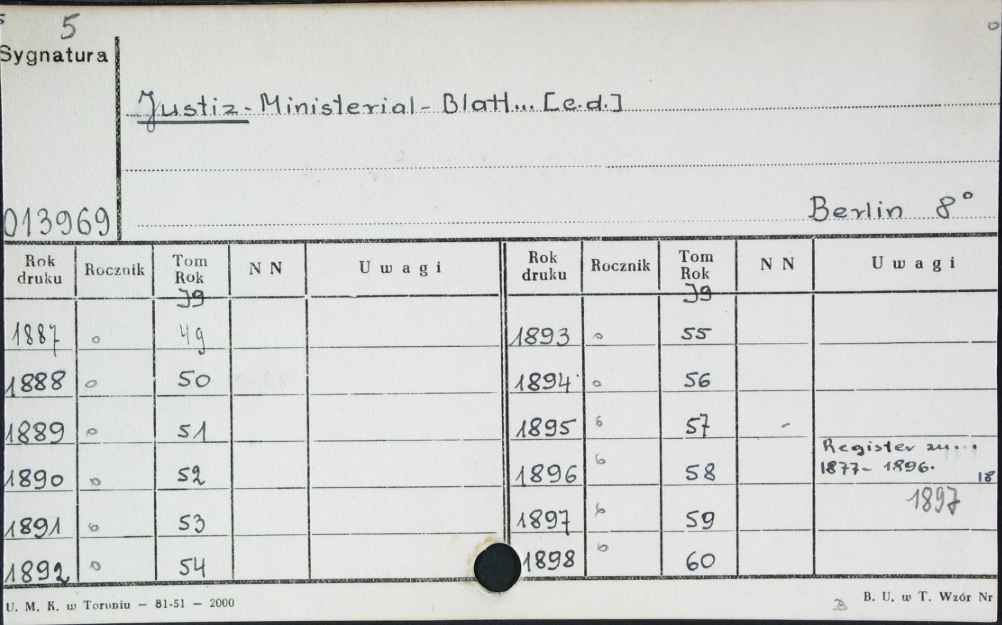 5
Sygnatura
Justiz-Ministerial-Blatt... [c.d.]
013969
Berlin 8°
Rok druku Rocznik Tom Rok NN Uwagi Rok druku Rocznik Tom Rok NN Uwagi
Jg Jg
1887 49 1893 55
1888 50 1894 56
1889 51 1895 57
1890 52 1896 58 Register zu... 1877-1896. 18
1891 53 1897 59 1897
1892 54 1898 60
U. M. K. w Toruniu — 81-51 — 2000
B. U. w T. Wzór Nr